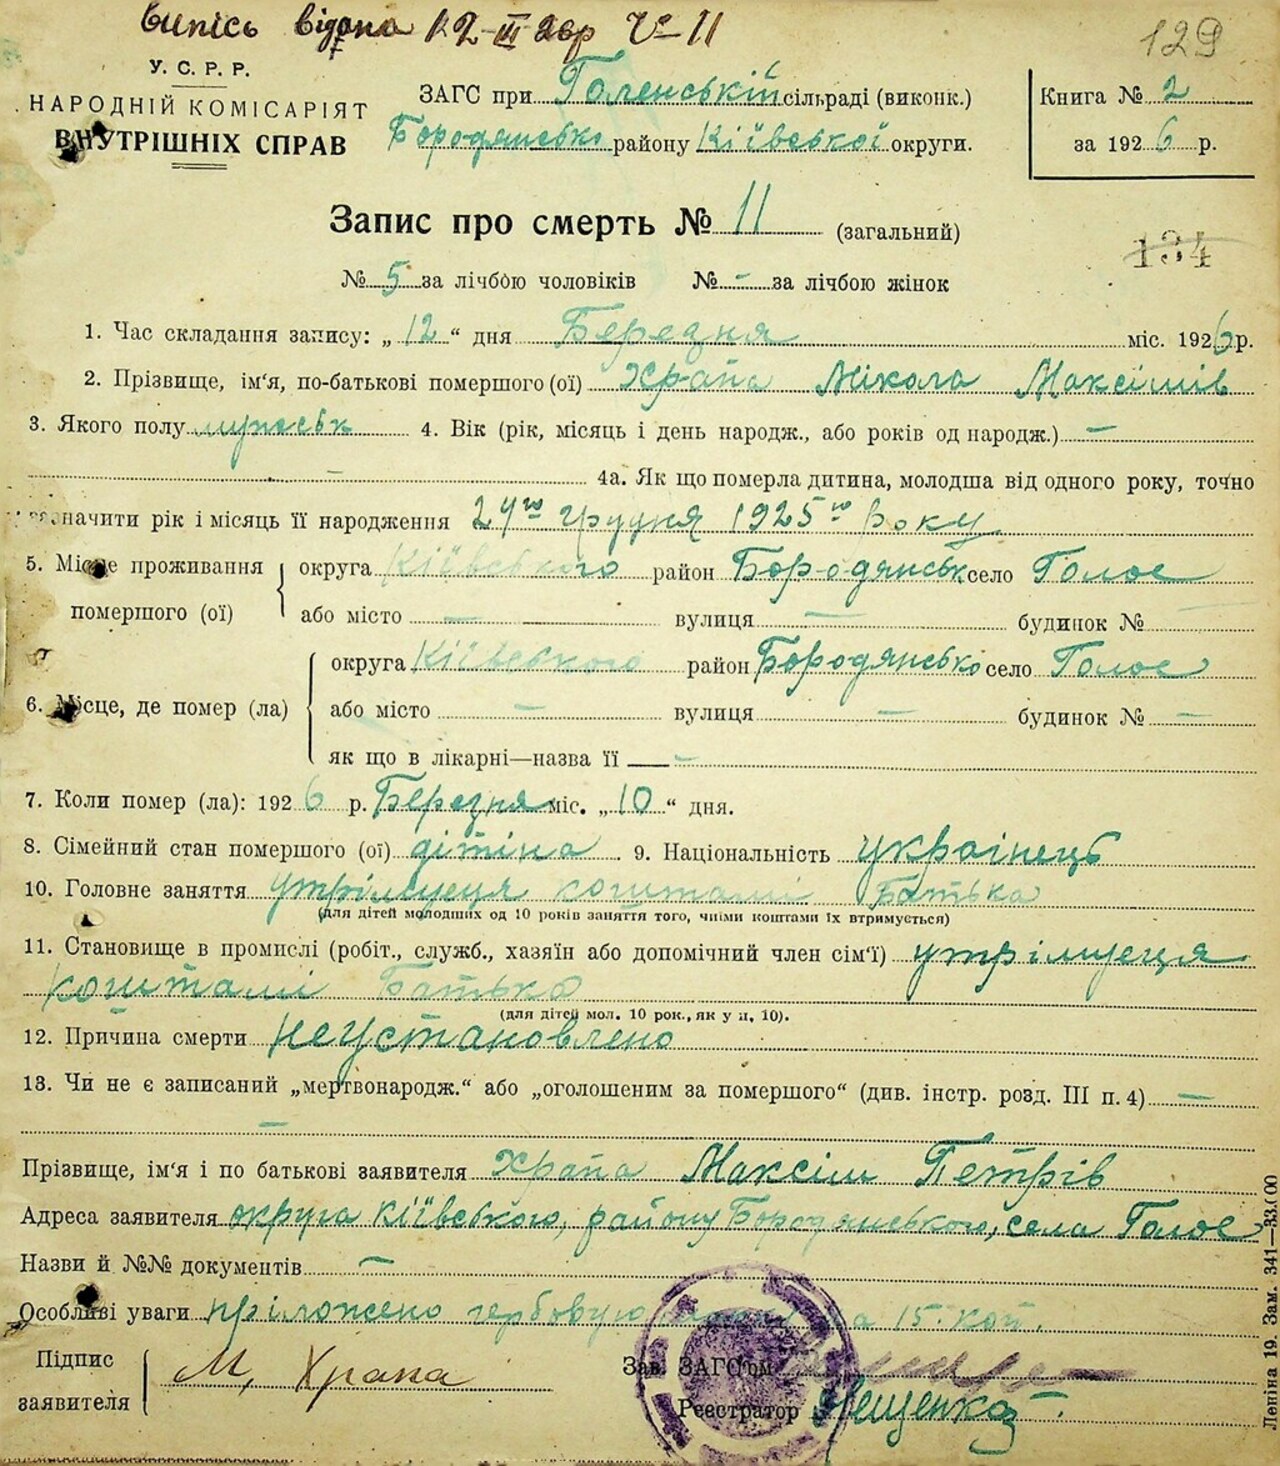 випісь відана 12-III 26р № 11
129
У. С. Р. Р.
НАРОДНІЙ КОМІСАРІЯТ
ВНУТРІШНІХ СПРАВ
ЗАГС при Голенській сільраді (виконк.)
Бородянсько району Кіівської округи.
Книга № 2
за 1926 р.
Запис про смерть № 11 (загальний)
134
№ 5 за лічбою чоловіків № - за лічбою жінок
1. Час складання запису: „12“ дня Березня міс. 1926 р.
2. Прізвище, ім'я, по-батькові помершого (ої) Храпа Мікола Максімів
3. Якого полу мужеськ 4. Вік (рік, місяць і день народж., або років од народж.) —
— 4а. Як що померла дитина, молодша від одного року, точно
зазначити рік і місяць її народження 24го грудня 1925го Року
5. Місце проживання помершого (ої) округа Кіївського район Бородянськ село Голое
або місто — вулиця — будинок №
6. Місце, де помер (ла) округа Кіївського район Бородянсько село Голое
або місто — вулиця — будинок № —
як що в лікарні—назва її —
7. Коли помер (ла): 1926 р. Березня міс. „10“ дня.
8. Сімейний стан помершого (ої) дітіна. 9. Національність украінець
10. Головне заняття утрімуеця коштамі Батька
(для дітей молодших од 10 років заняття того, чиїми коштами їх втримується)
11. Становище в промислі (робіт., служб., хазяїн або допомічний член сім'ї) утрімуеця
коштамі Батька
(для дітей мол. 10 рок., як у п. 10).
12. Причина смерти неустановлено
13. Чи не є записаний „мертвонародж.“ або „оголошеним за помершого“ (див. інстр. розд. III п. 4) —
—
Прізвище, ім'я і по батькові заявителя Храпа Максім Петрів
Адреса заявителя округа Кіївського, району Бородянського, села Голое
Назви й №№ документів —
Особливі уваги пріложено гербовую на 15. коп.
Підпис заявителя М, Храпа
Зав. ЗАГС'ом
Реєстратор
Леніна 19. Зам. 341—33.000